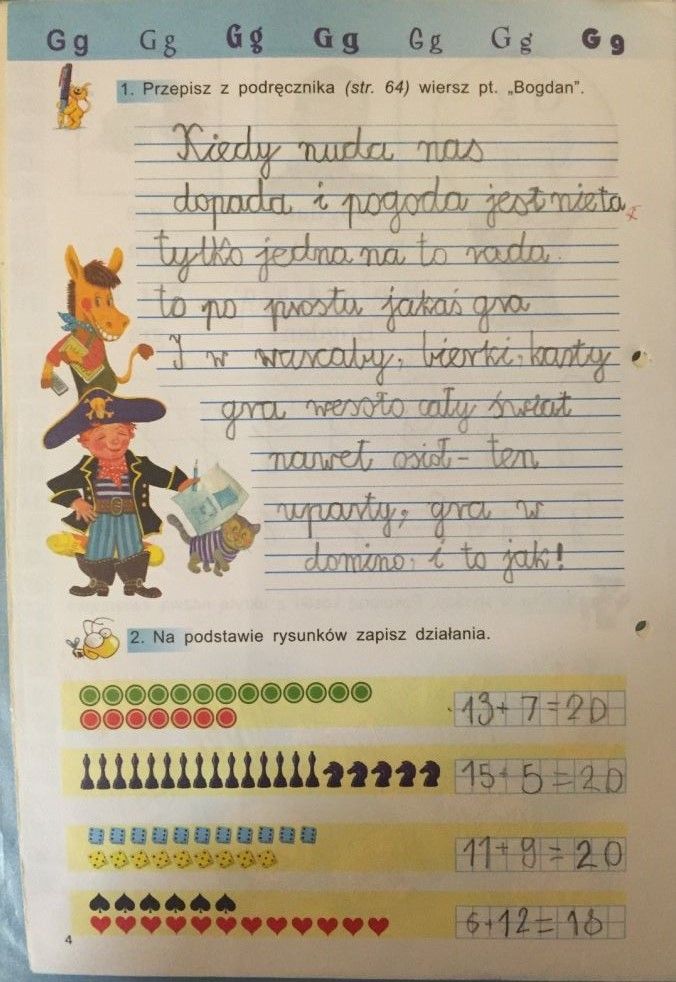 Gg Gg Gg Gg Gg Gg Gg
1. Przepisz z podręcznika (str. 64) wiersz pt. „Bogdan”.
Kiedy nuda nas
dopada i pogoda jest nieta
tylko jedna na to rada.
to po prostu jakaś gra
I w warcaby, bierki, karty
gra wesoło cały świat
nawet osioł - ten
uparty, gra w
domino, i to jak!
2. Na podstawie rysunków zapisz działania.
13+7=20
15+5=20
11+9=20
6+12=18
4